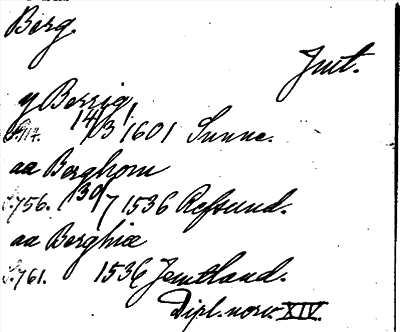 Berg.
Jmt.
y Berrig!
14/3 1601 Sunne.
aa Berghom
S. 756. 30/7 1536 Refsund.
aa Berghiæ
S. 761. 1536 Jemtland.
Dipl. norv. XIV.